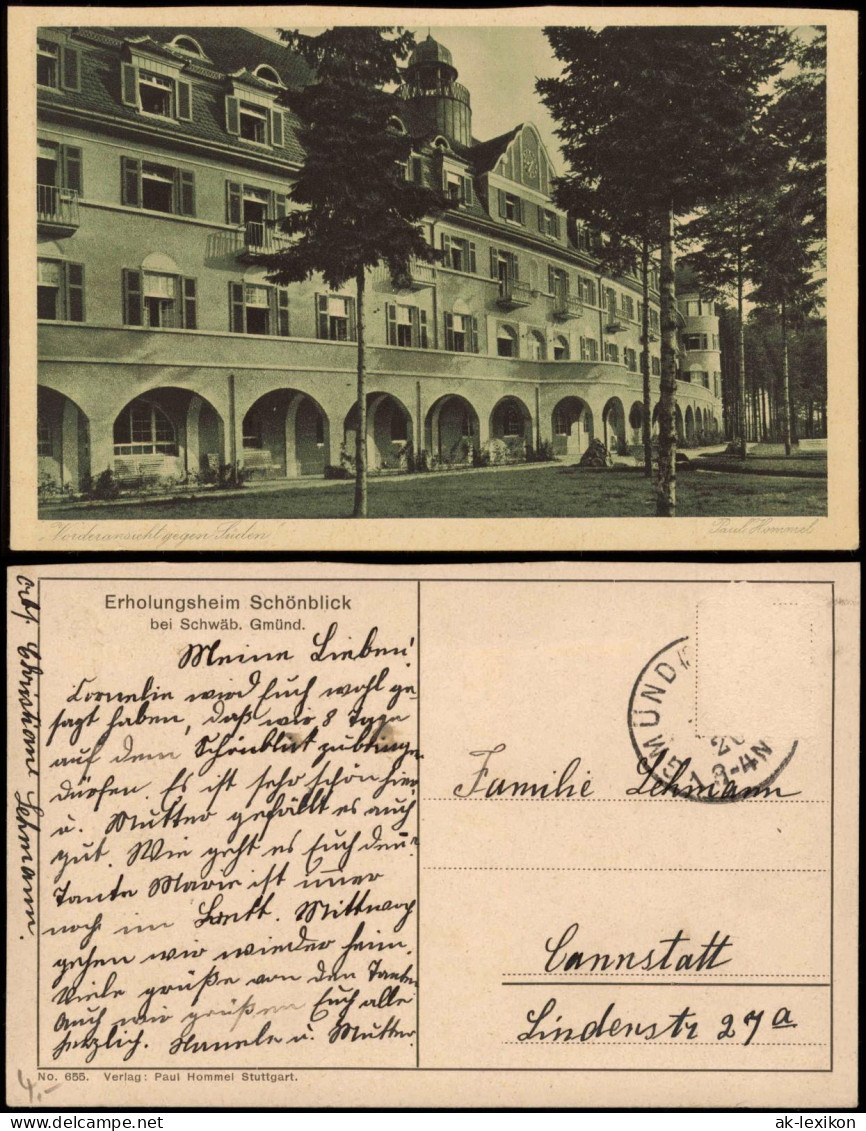 „Vorderansicht gegen Süden“
Paul Hommel
Erholungsheim Schönblick
bei Schwäb. Gmünd.
Meine Lieben!
Cornelie wird Euch wohl ge-
sagt haben, daß wir 8 Tage
auf dem Schönblik zubringen
dürfen. Es ist sehr schön hier
u. Mutter gefällt es auch
gut. Wie geht es Euch denn?
Tante Marie ist immer
noch im Bett. Mittwoch
gehen wir wieder heim.
Viele grüße von den Tanten
Auch wir grüßen Euch alle
herzlich. u. Mutter.
Lehmann.
GMÜND
3-4N
Familie Lehmann
Cannstatt
Lindenstr 27a
No. 655. Verlag: Paul Hommel Stuttgart.
4,-
© oldthing.de
ak-lexikon